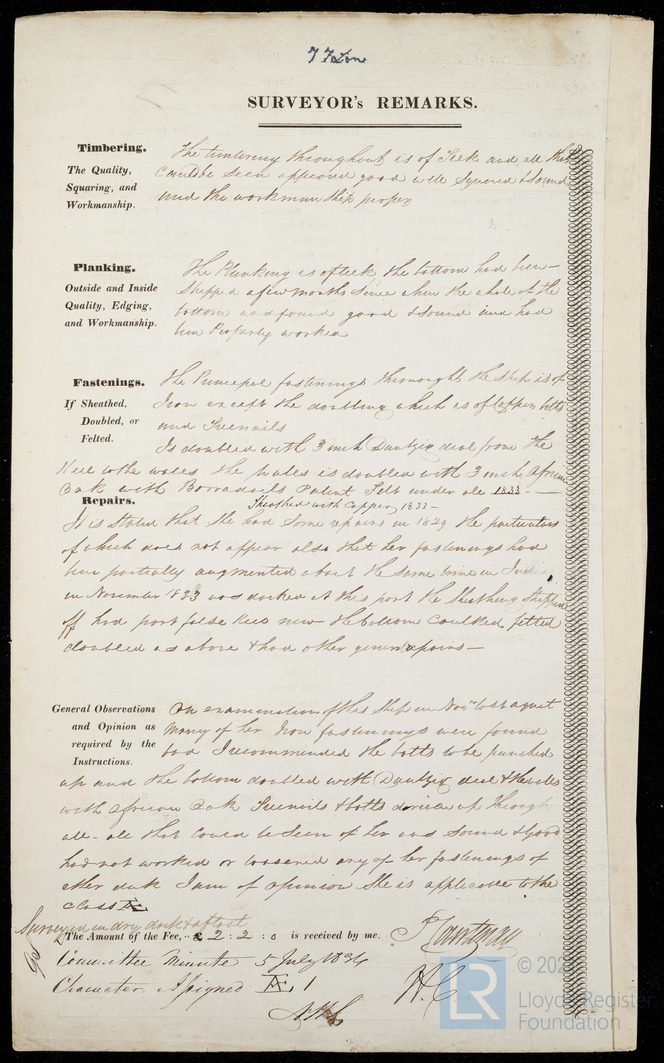 SURVEYOR's REMARKS.
Timbering.
The Quality,
Squaring, and
Workmanship.
The timbering throughout is of Teek and all that
could be seen appeared good well squared & sound
and the workmanship proper
Planking.
Outside and Inside
Quality, Edging,
and Workmanship.
The Planking is of teek the bottom had been
stripped a few months since when the whole of the
bottom was found good & sound and had
been Properly worked
Fastenings.
If Sheathed,
Doubled, or
Felted.
The Principel fastenings throught the ship is of
Iron except the doubling which is of Copper bolts
and Treenails
Is doubled with 3 inch Dantzig deal from the
Keel to the wales the wales is doubled with 3 inch African
Oak with Borradails Patent Felt under all 1833
Sheathed with Copper 1833
Repairs.
It is stated that she had some repairs in 1829 the particulars
of which does not appear also that her fastenings had
been partially augmented about the same time in India
in November 1833 was docked at this port the Sheathing stripped
off had part false keel new the bottom Caulked felted
doubled as above & had other general repairs
General Observations
and Opinion as
required by the
Instructions.
On examination of this ship in Novr last
many of her Iron fastenings were found
bad I recommended the bolts to be punched
up and the bottom doubled with Dantzig deal & the wales
with african Oak Treenails & bolts driven through
all - all that could be seen of her was sound & good
had not worked or loosened any of her fastenings of
I am of opinion she is applicable to the
Class Æ
Surveyed in dry dock & afloat
The Amount of the Fee, £ 2 : 2 : 0 is received by me.
Committee Minute 5 July 1834
Character Assigned Æ. 1
H.C.
LR
© 202
Lloyd's Register
Foundation